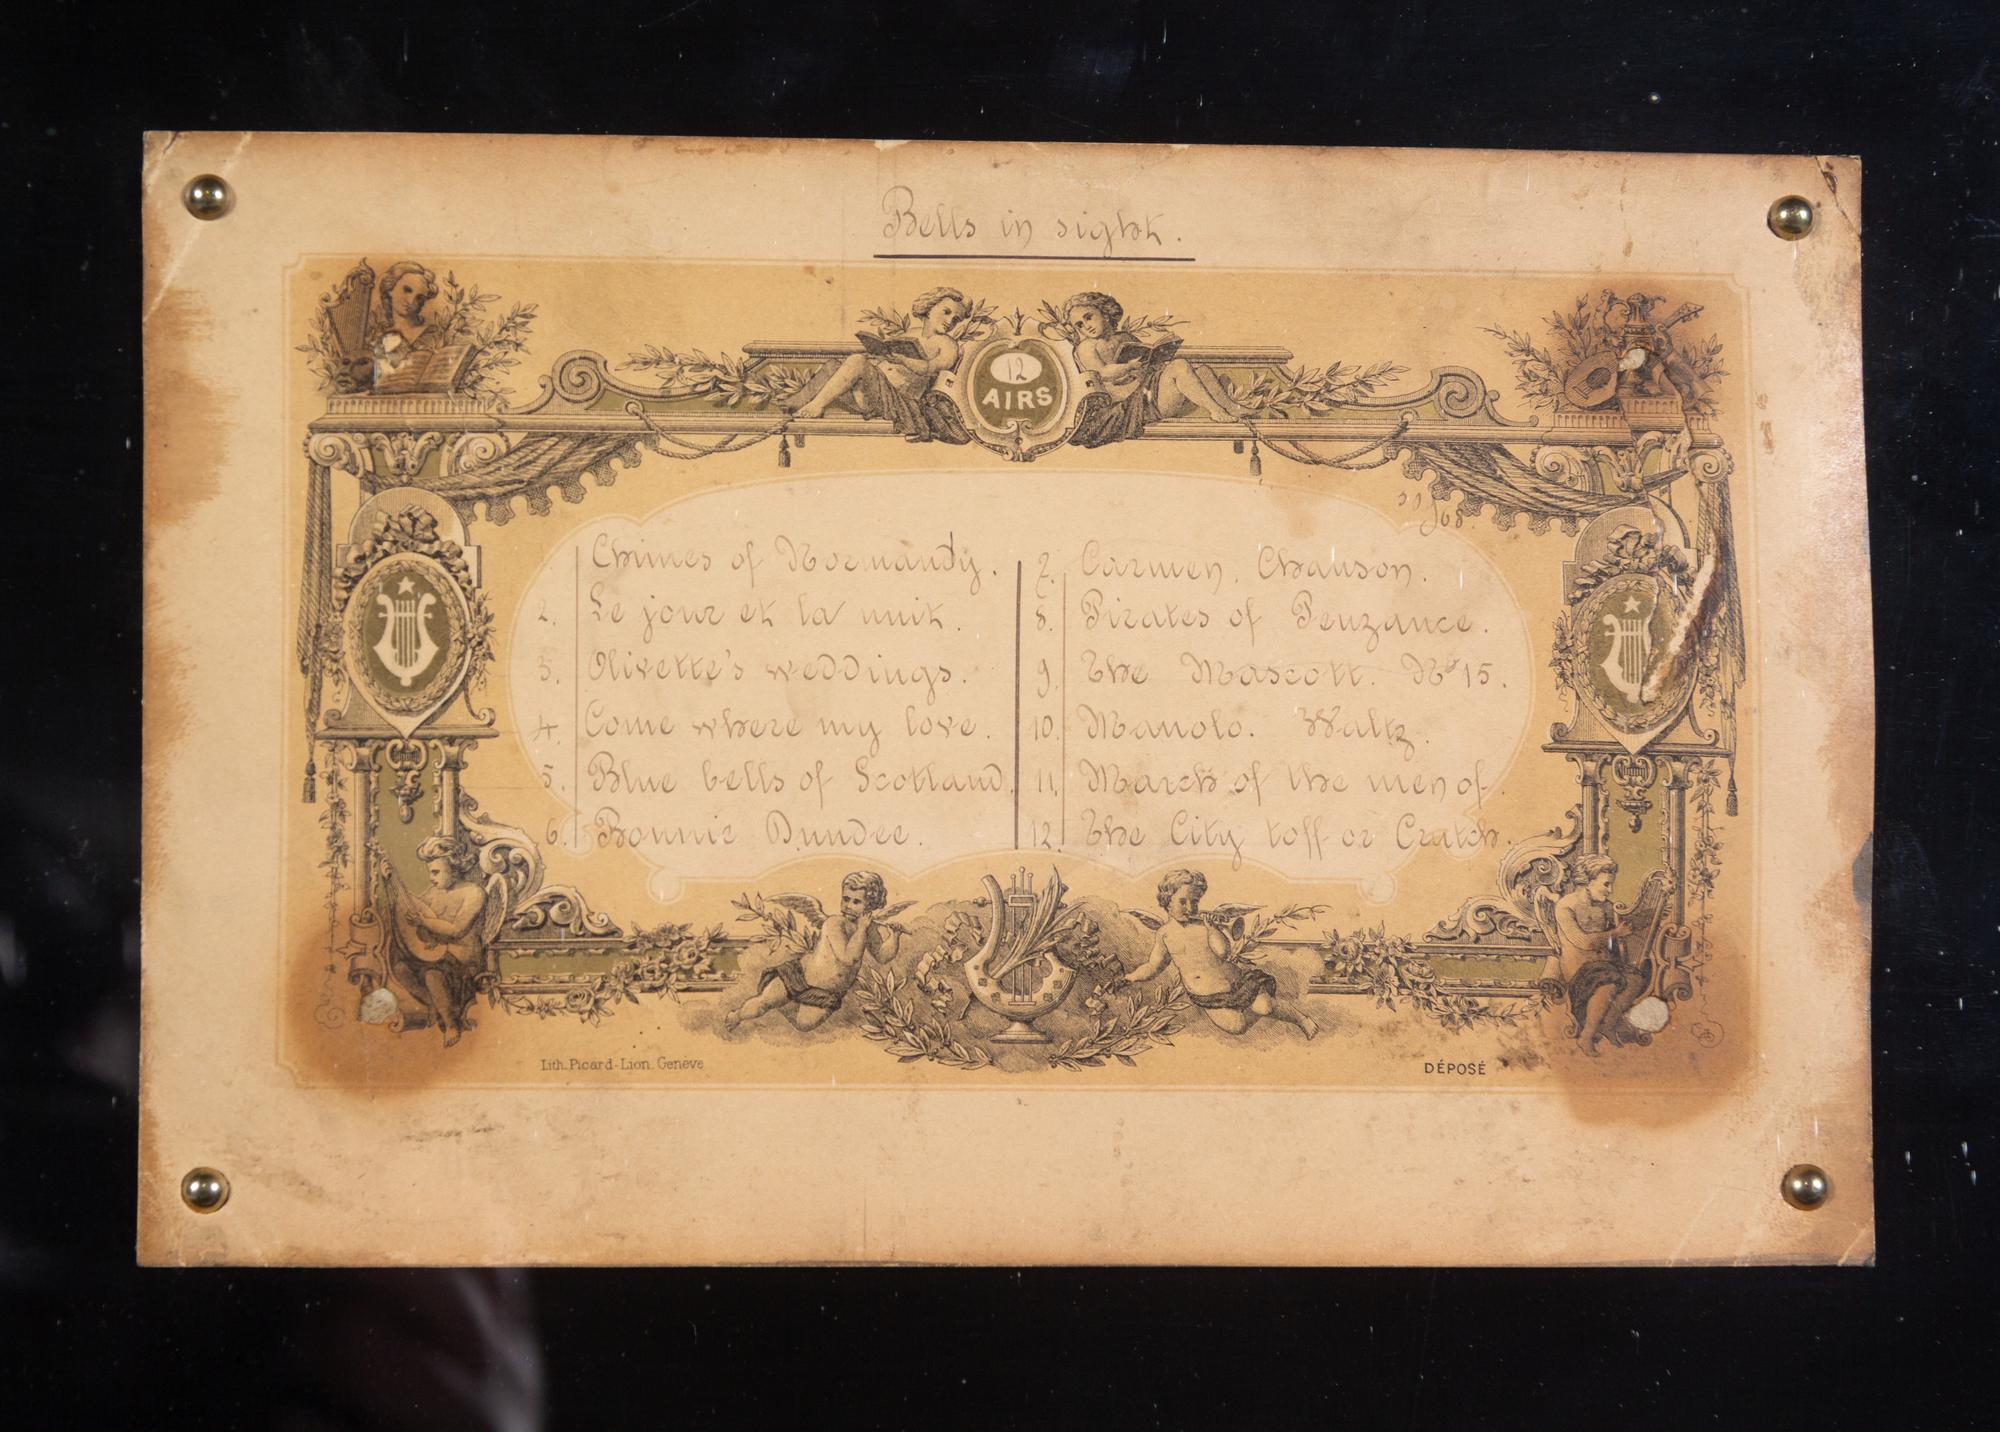 Bells in sight.
12
AIRS
Chimes of Normandy.
2. Le jour et la nuit.
3. Olivette's weddings.
4. Come where my love.
5. Blue bells of Scotland
6. Bonnie Dundee.
7. Carmen, Chanson.
8. Pirates of Penzance.
9. The Mascott. No 15.
10. Manolo. Waltz.
11. March of the men of.
12. The City toff or Crutch.
Lith. Picard-Lion. Genève
DÉPOSÉ